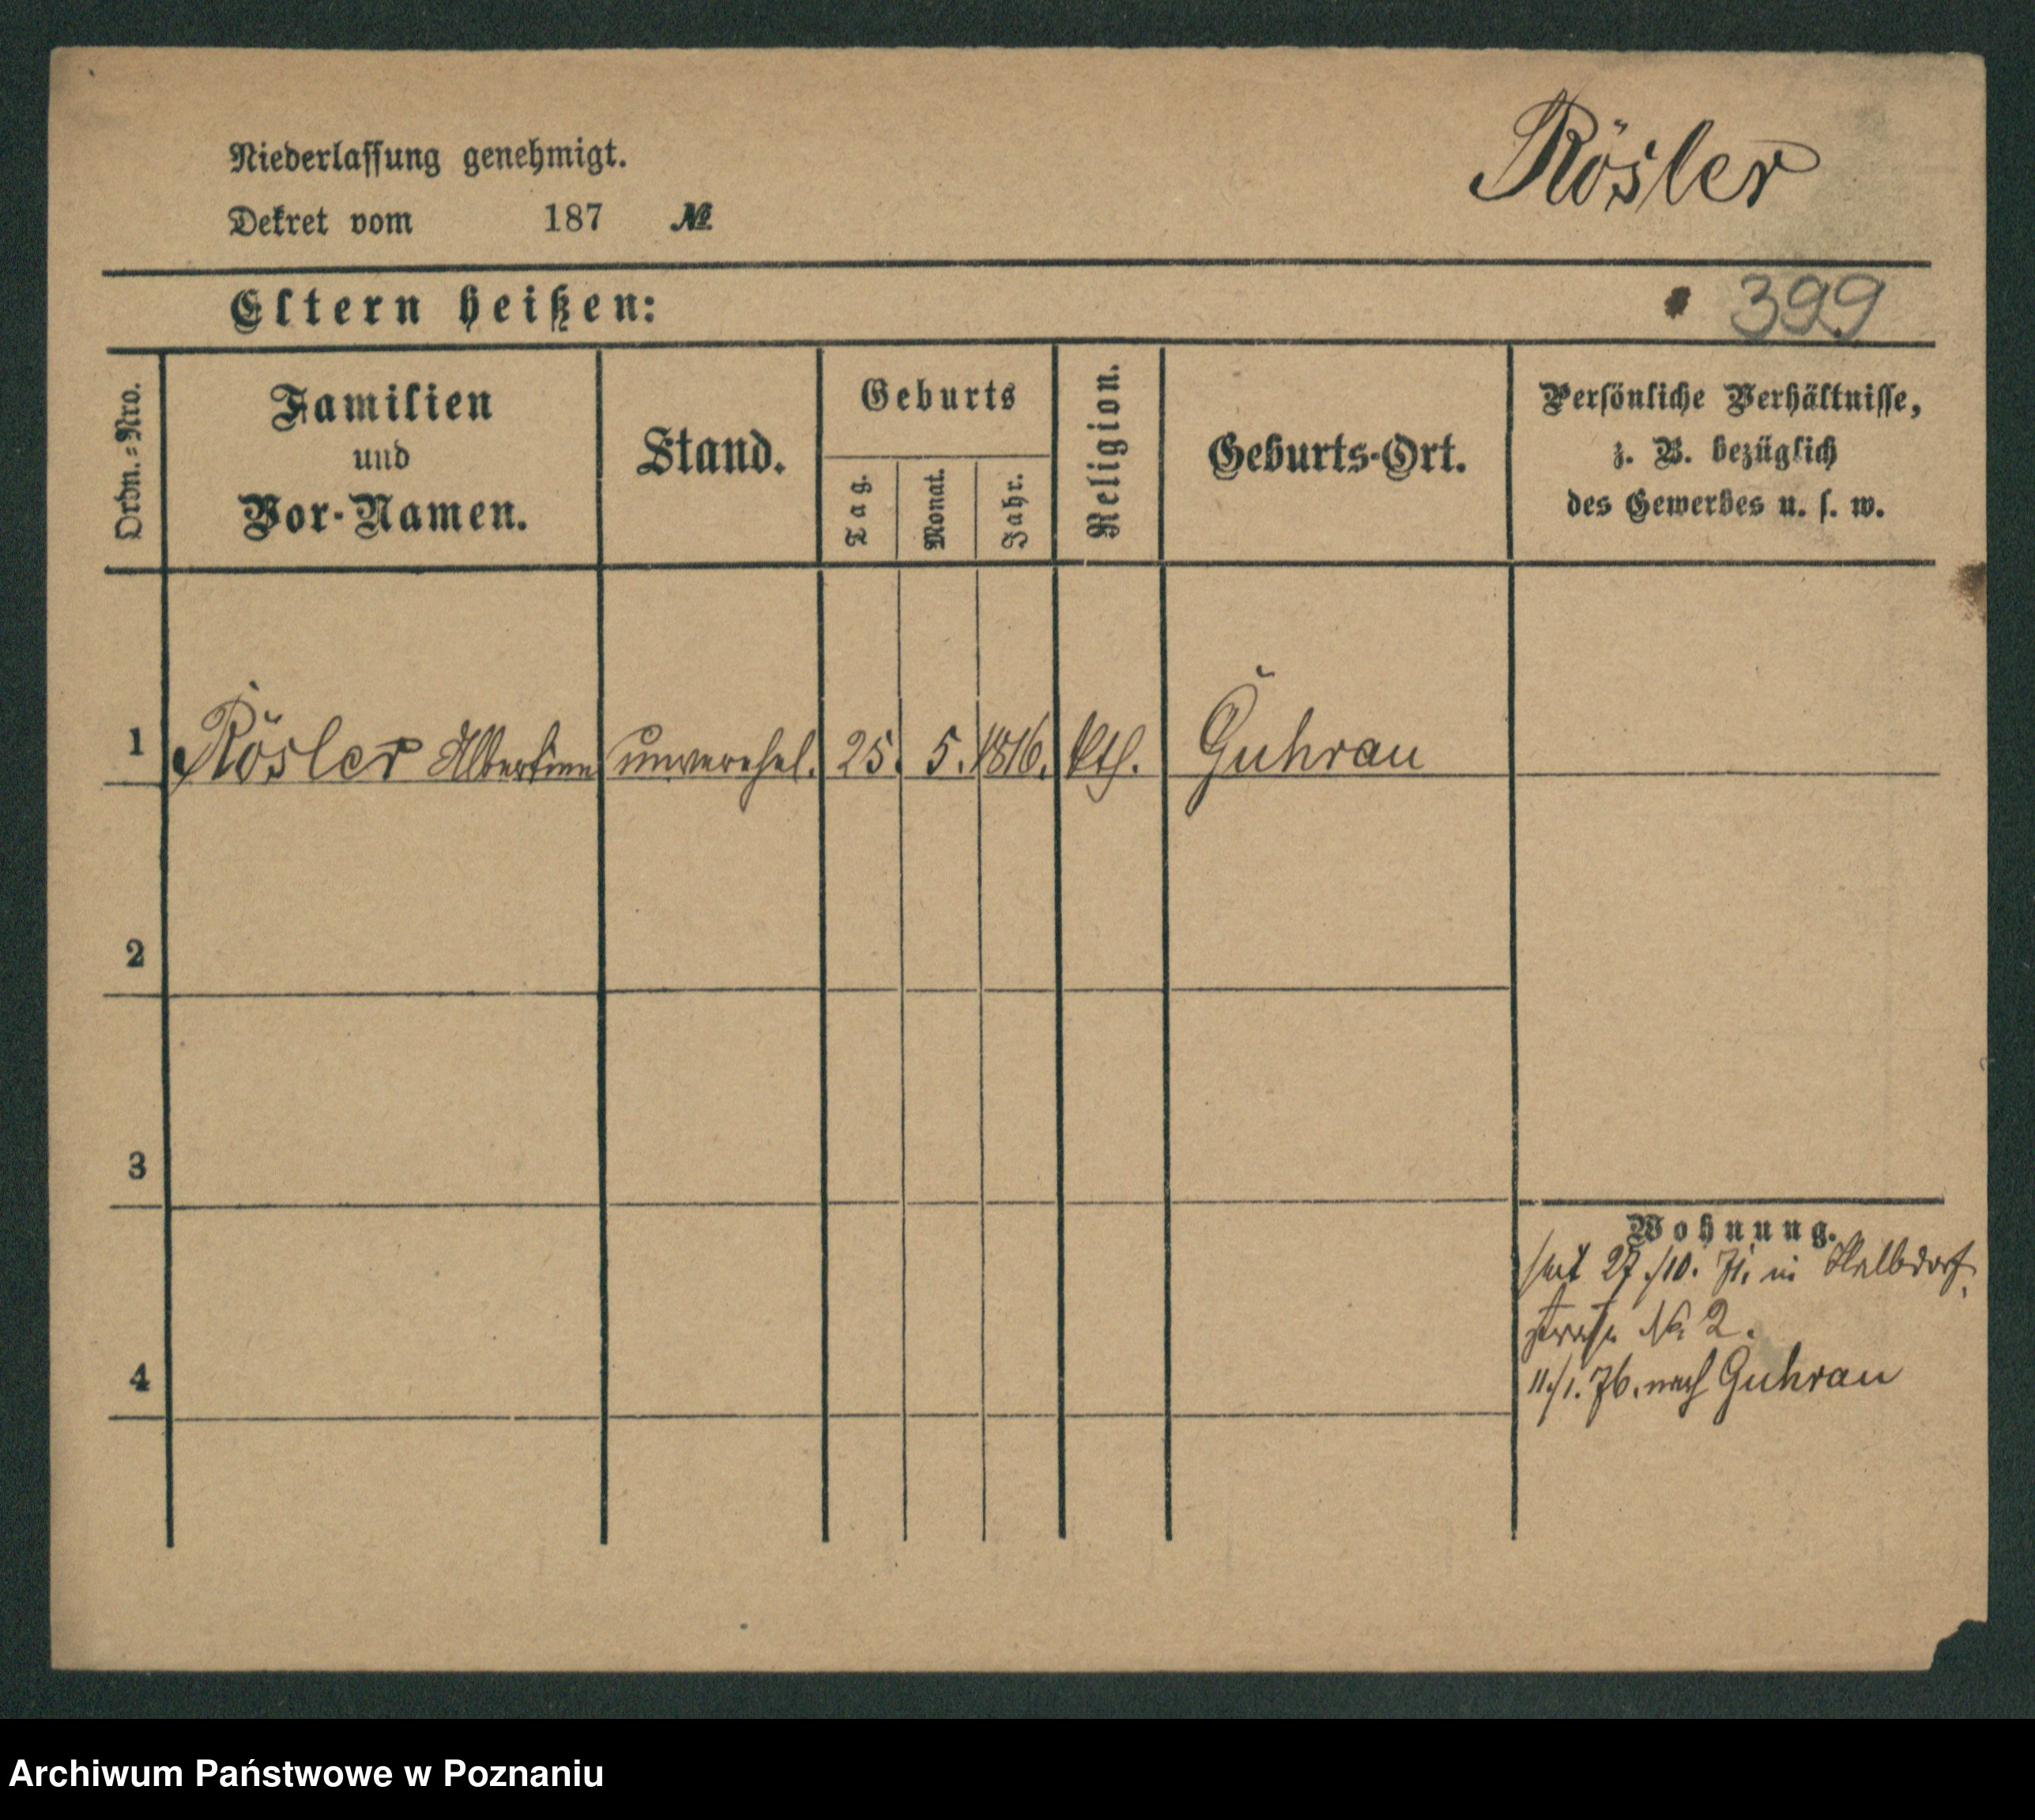 Niederlassung genehmigt.
Rösler
Dekret vom 187 №
Eltern heißen:
399
Ordn.-Nro.
Familien und Vor-Namen.
Stand.
Geburts
Tag.
Monat.
Jahr.
Religion.
Geburts-Ort.
Persönliche Verhältnisse,
z. B. bezüglich
des Gewerbes u. s. w.
1 Rösler Albertine unverehel. 25. 5. 1816. kth. Guhrau
2
3
Wohnung.
seit 27./10. 71. in Halbdorf
straße No. 2.
11./1. 76. nach Guhrau
4
Archiwum Państwowe w Poznaniu